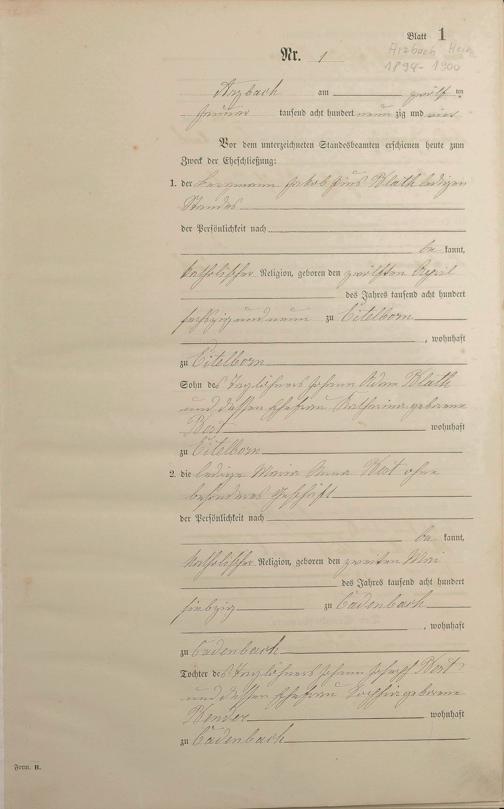 Blatt 1
Arzbach Heir
1894-1900
Nr. 1
Arzbach am zwölf ten
Januar tausend acht hundert neun zig und vier
Vor dem unterzeichneten Standesbeamten erschienen heute zum
Zweck der Eheschließung:
1. der Bergmann Jakob Pius Blath ledigen
Standes
der Persönlichkeit nach
be kannt,
katholischer Religion, geboren den zwölften April
des Jahres tausend acht hundert
sechzig und neun zu Eitelborn
, wohnhaft
zu Eitelborn
Sohn des Taglöhners Johann Adam Blath
und dessen Ehefrau Katharina geborene
wohnhaft
zu Eitelborn
2. die ledige Maria Anna ohne
besonderes Geschäft
der Persönlichkeit nach
be kannt,
katholischer Religion, geboren den zweiten Mai
des Jahres tausend acht hundert
siebzig zu Cadenbach
, wohnhaft
zu Cadenbach
Tochter des Taglöhners Johann Joseph
und dessen Ehefrau Sophia geborene
Bender wohnhaft
zu Cadenbach
Form. B.